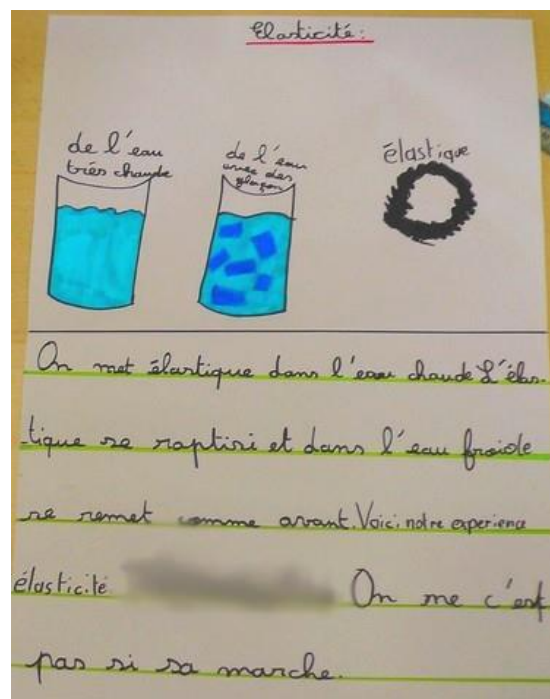 Elasticité:
de l'eau
très chaude
de l'eau
avec des
glaçon
élastique
On met élastique dans l'eau chaude L'élas-
tique se raptisi et dans l'eau froide
se remet comme avant. Voici notre experience
élasticité On me c'est
pas si sa marche.